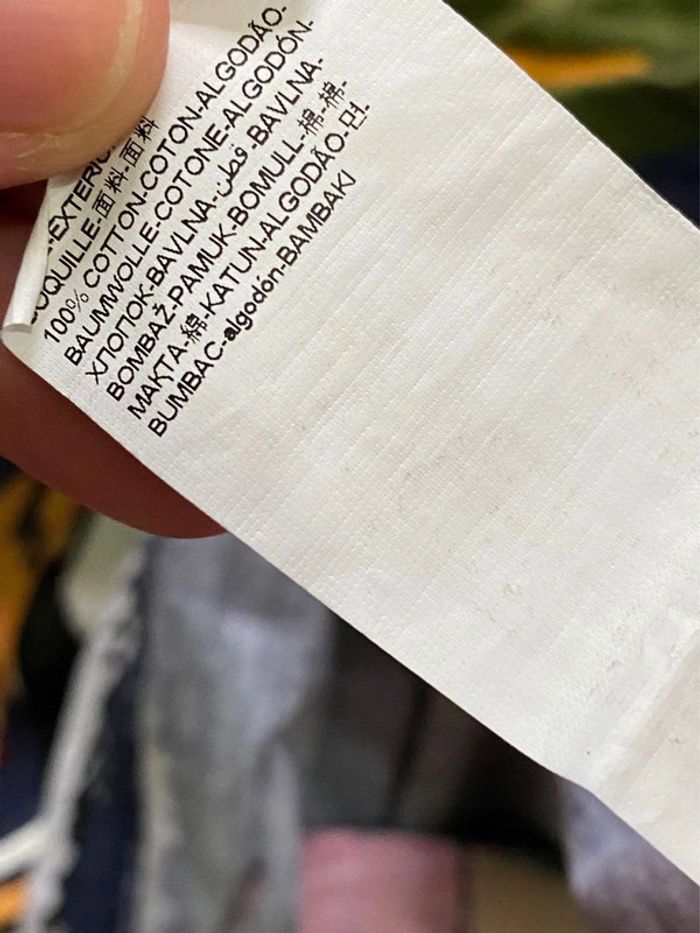 -EXTERIO
COQUILLE-面料-面料
100% COTTON-COTON-ALGODÃO-
BAUMWOLLE-COTONE-ALGODÓN-
ХЛОПОК-BAVLNA-قطن-BAVLNA-
BOMBAŽ-PAMUK-BOMULL-棉-棉-
МАҚТА-綿-KATUN-ALGODÃO-면-
BUMBAC-algodón-BAMBAKI